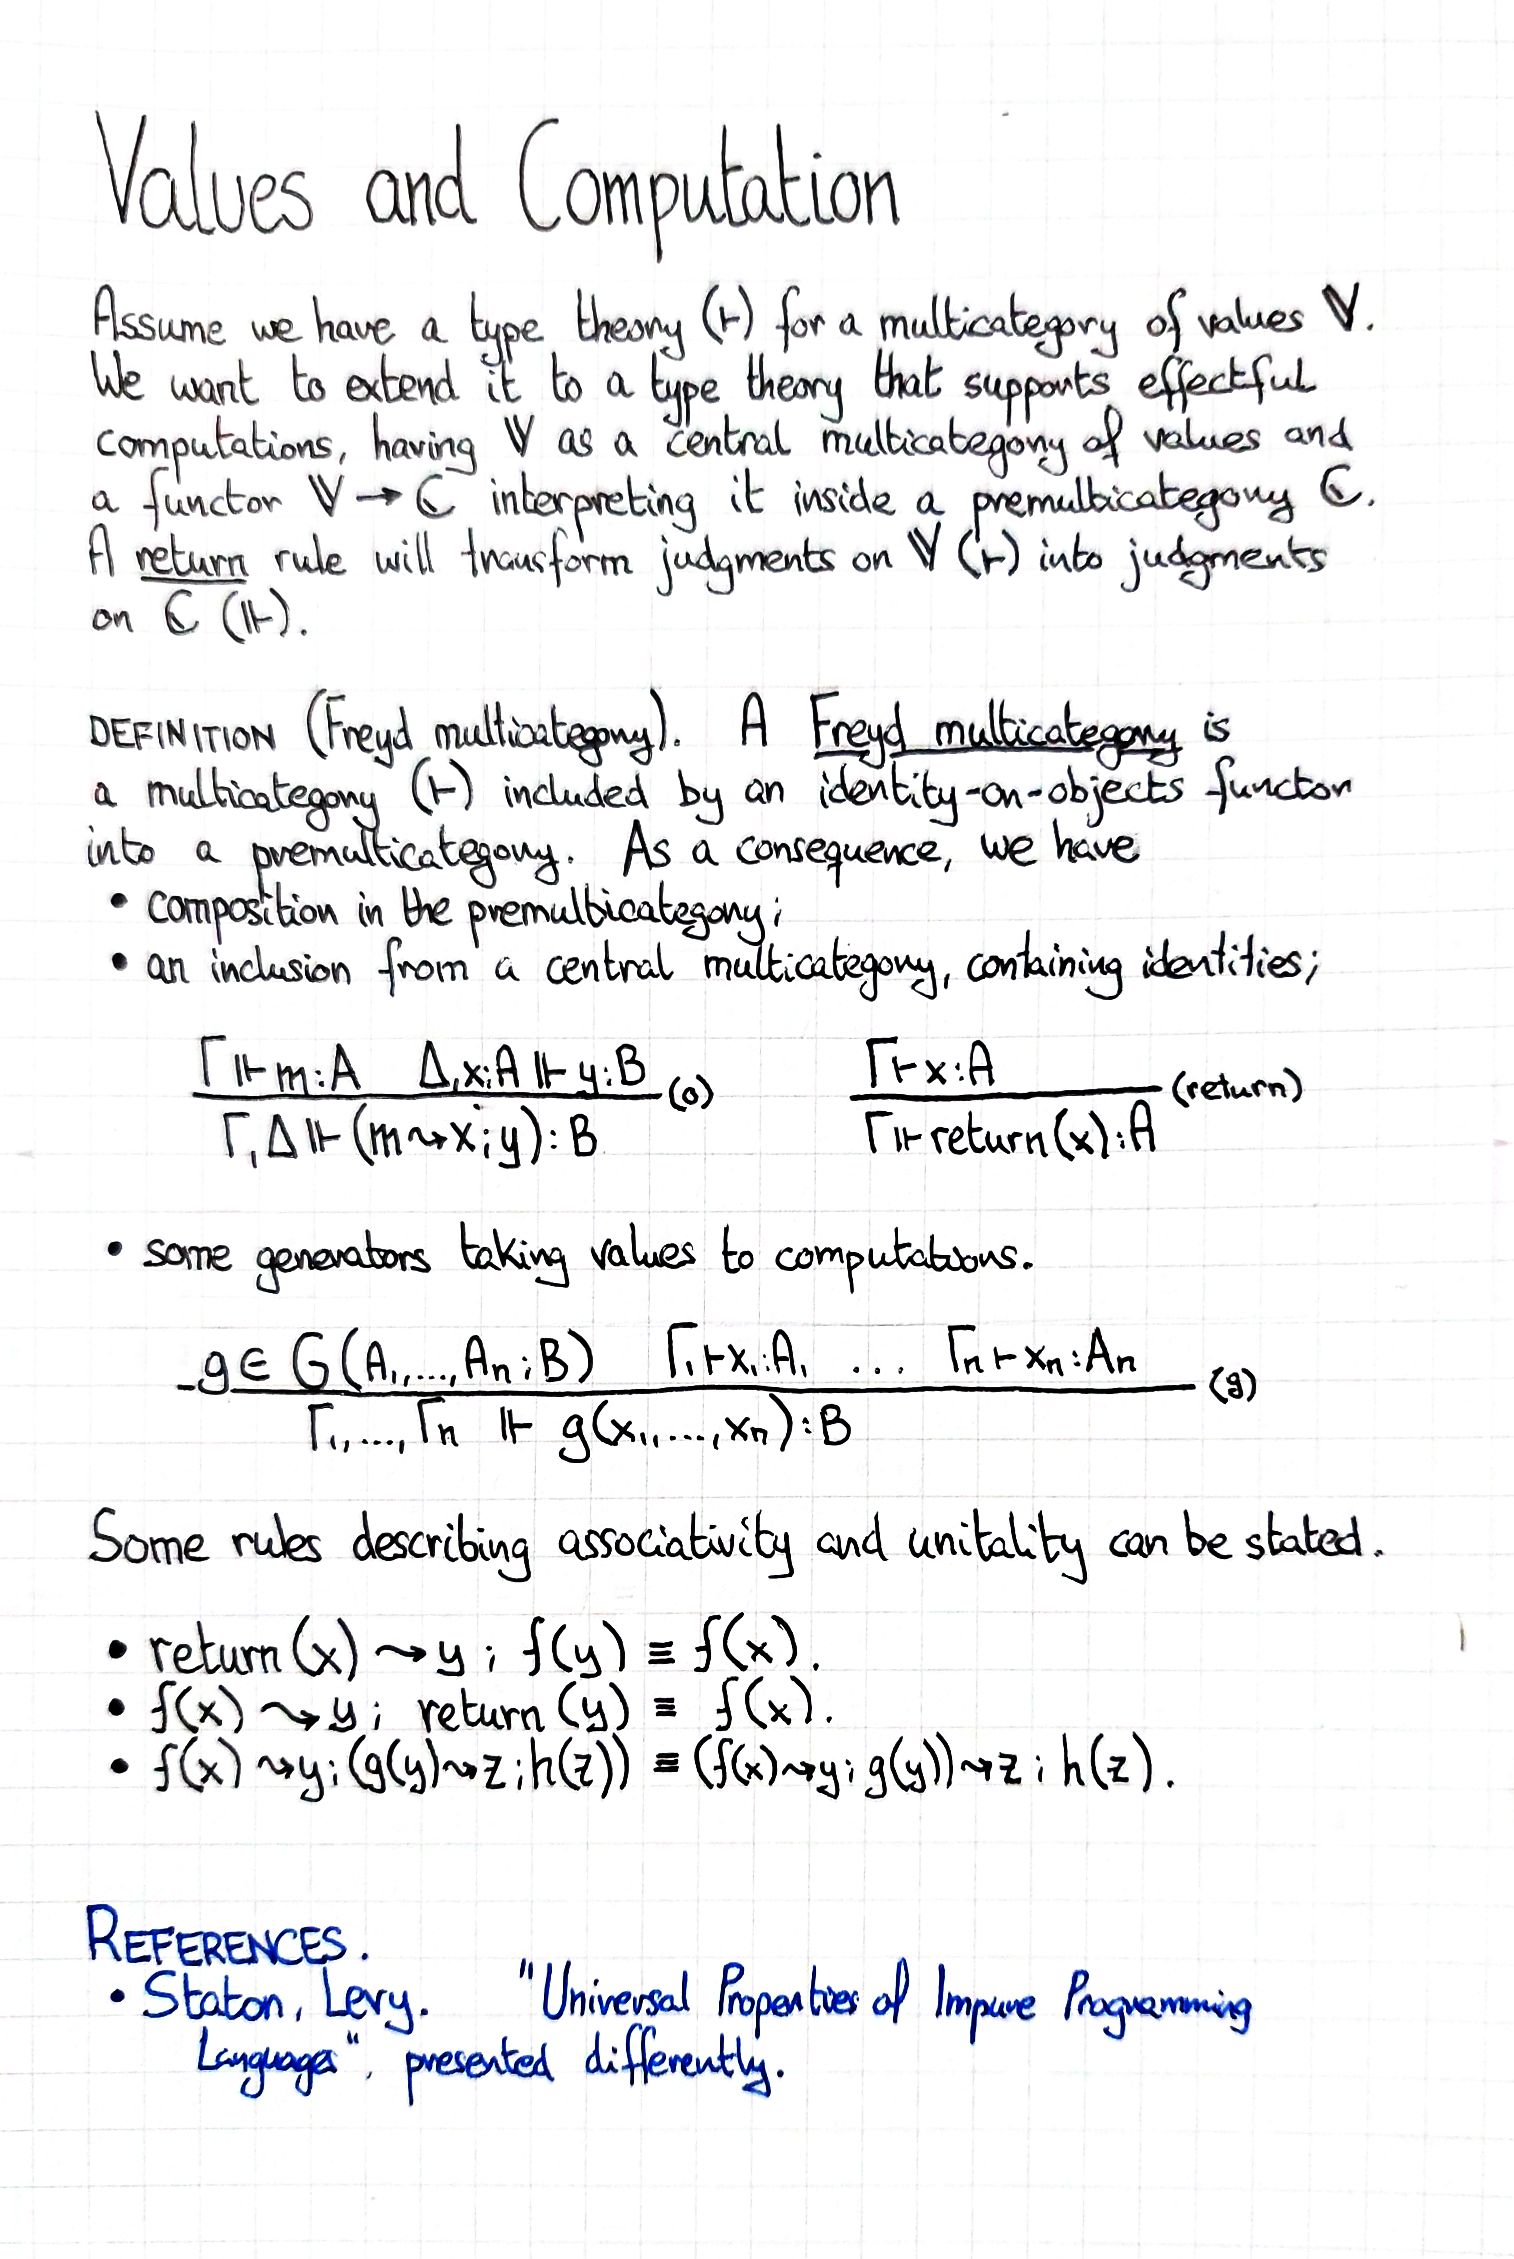 Values and Computation
Assume we have a type theory (⊢) for a multicategory of values 𝕍.
We want to extend it to a type theory that supports effectful
computations, having 𝕍 as a central multicategory of values and
a functor 𝕍 → ℂ interpreting it inside a premulticategory ℂ.
A return rule will transform judgments on 𝕍 (⊢) into judgments
on ℂ (⊩).
DEFINITION (Freyd multicategory). A Freyd multicategory is
a multicategory (⊢) included by an identity-on-objects functor
into a premulticategory. As a consequence, we have
• composition in the premulticategory;
• an inclusion from a central multicategory, containing identities;
Γ ⊩ m : A   Δ, x : A ⊩ y : B (o)
Γ, Δ ⊩ (m ⇝ x ; y) : B
Γ ⊢ x : A (return)
Γ ⊩ return(x) : A
• some generators taking values to computations.
g ∈ G(A₁,..., Aₙ ; B)   Γ₁ ⊢ x₁ : A₁ ... Γₙ ⊢ xₙ : Aₙ (g)
Γ₁,..., Γₙ ⊩ g(x₁,..., xₙ) : B
Some rules describing associativity and unitality can be stated.
• return(x) ⇝ y ; f(y) ≡ f(x).
• f(x) ⇝ y ; return(y) ≡ f(x).
• f(x) ⇝ y ; (g(y) ⇝ z ; h(z)) ≡ (f(x) ⇝ y ; g(y)) ⇝ z ; h(z).
REFERENCES.
• Staton, Levy. "Universal Properties of Impure Programming
Languages", presented differently.